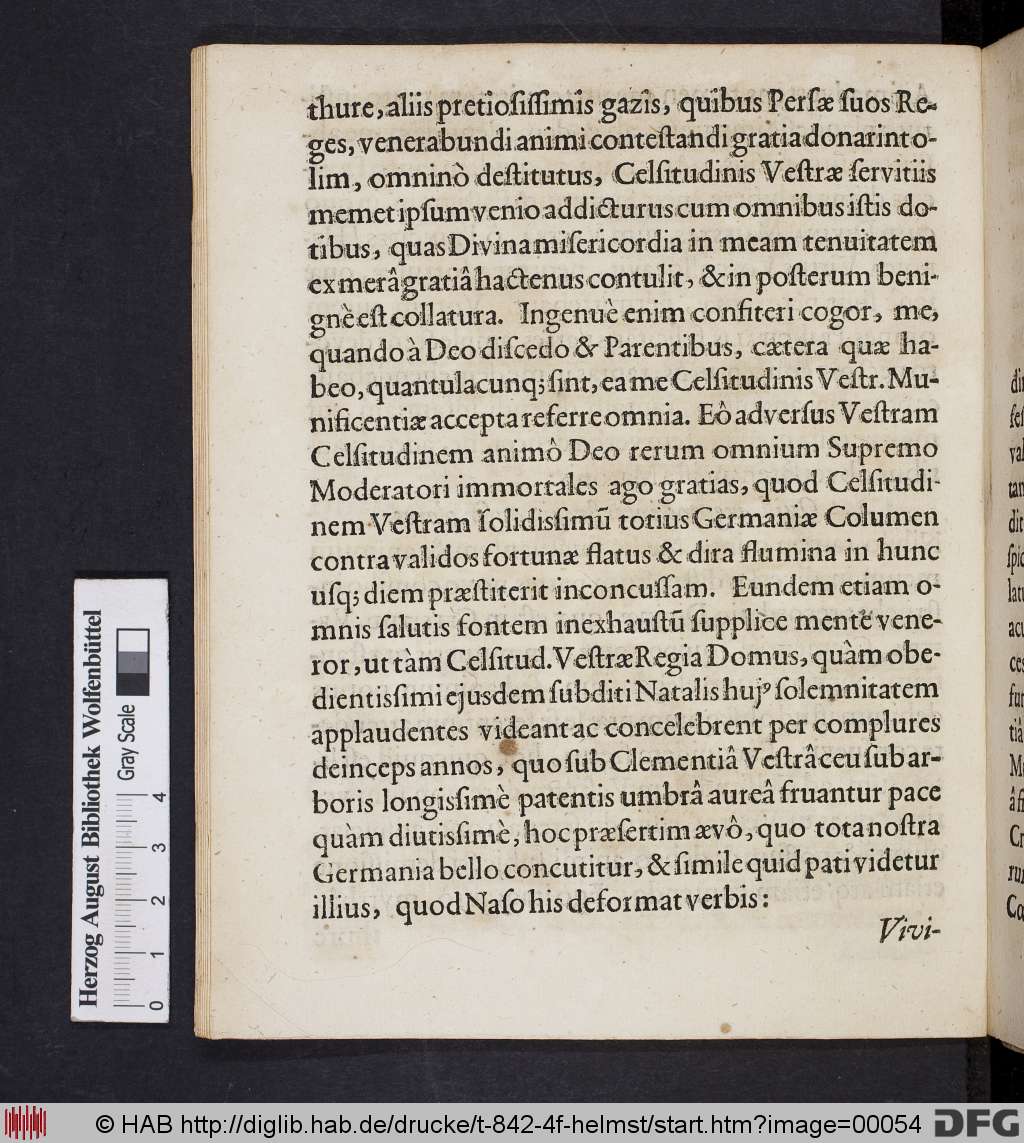 thure, aliis pretiosissimis gazis, quibus Persæ suos Re-
ges, venerabundi animi contestandi gratia donarint o-
lim, omninò destitutus, Celsitudinis Vestræ servitiis
memet ipsum venio addicturus cum omnibus istis do-
tibus, quas Divina misericordia in meam tenuitatem
ex merâ gratiâ hactenus contulit, & in posterum beni-
gnè est collatura. Ingenuè enim confiteri cogor, me,
quando à Deo discedo & Parentibus, cætera quæ ha-
beo, quantulacunq; sint, ea me Celsitudinis Vestr. Mu-
nificentiæ accepta referre omnia. Eô adversus Vestram
Celsitudinem animô Deo rerum omnium Supremo
Moderatori immortales ago gratias, quod Celsitudi-
nem Vestram solidissimũ totius Germaniæ Columen
contra validos fortunæ flatus & dira flumina in hunc
usq; diem præstiterit inconcussam. Eundem etiam o-
mnis salutis fontem inexhaustũ supplice mente vene-
ror, ut tàm Celsitud. Vestræ Regia Domus, quàm obe-
dientissimi ejusdem subditi Natalis hujꝰ solemnitatem
applaudentes videant ac concelebrent per complures
deinceps annos, quo sub Clementiâ Vestrâ ceu sub ar-
boris longissimè patentis umbrâ aureâ fruantur pace
quàm diutissimè, hoc præsertim ævô, quo tota nostra
Germania bello concutitur, & simile quid pati videtur
illius, quod Naso his deformat verbis:
Vivi-
Herzog August Bibliothek Wolfenbüttel
Gray Scale
0 1 2 3 4
© HAB http://diglib.hab.de/drucke/t-842-4f-helmst/start.htm?image=00054
DFG